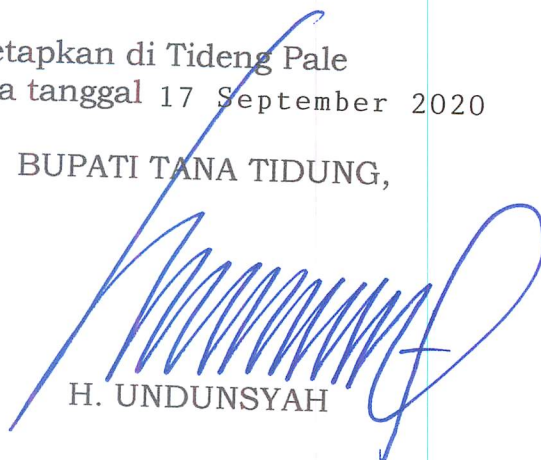 etapkan di Tideng Pale
a tanggal 17 September 2020
BUPATI TANA TIDUNG,
H. UNDUNSYAH